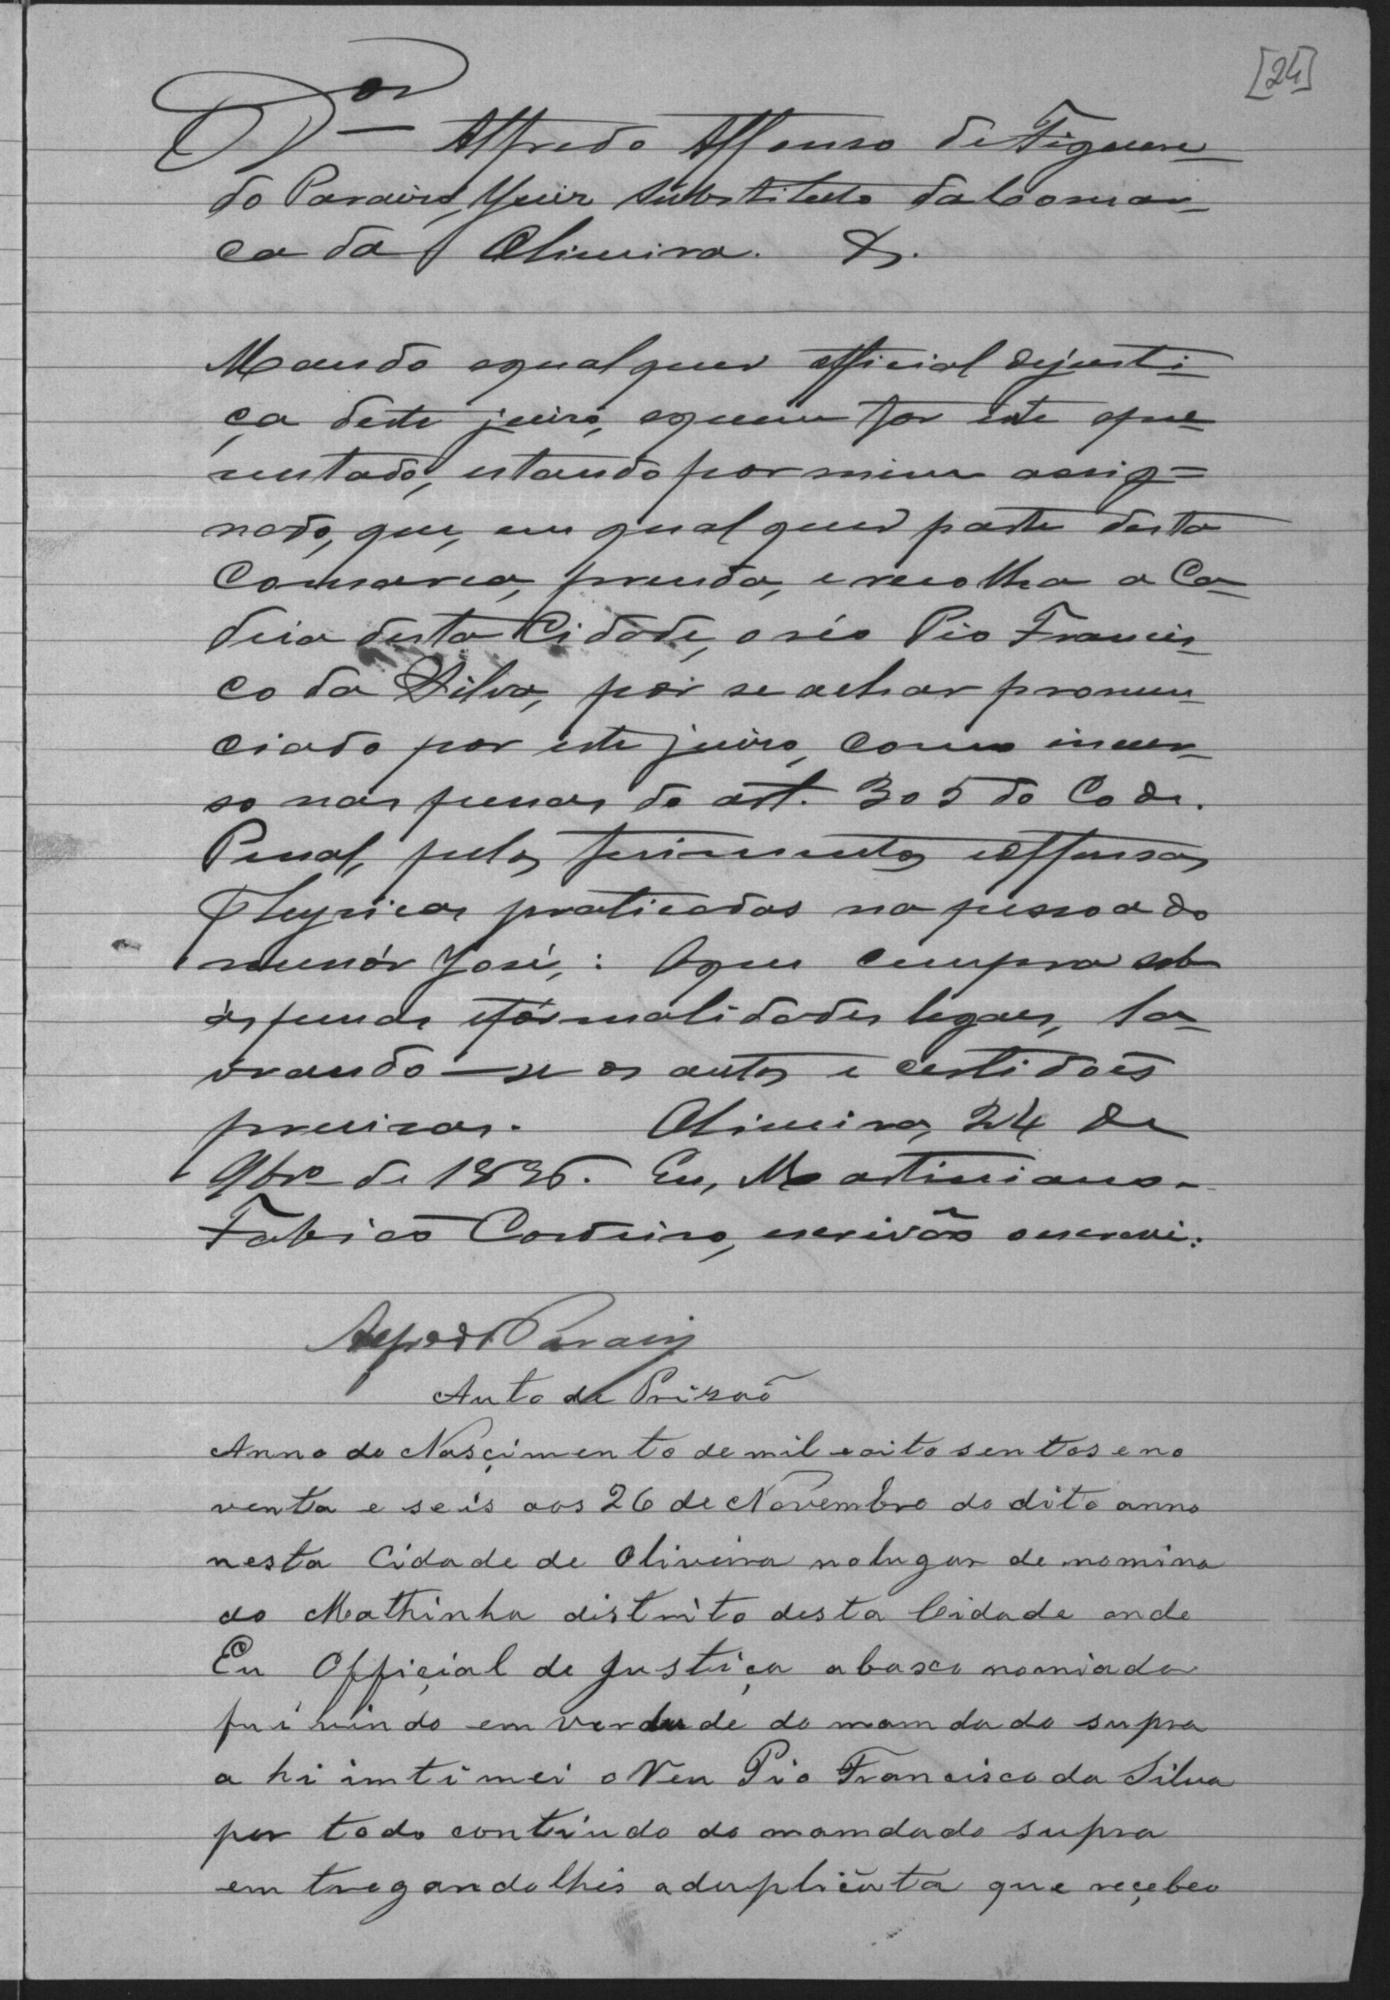 [24]
Dor Alfredo Affonso de Figueire-
do Paraiso, Juiz Substituto da Comar-
ca da Oliveira. &.
Mando aqualquer official dejusti-
ça deste juizo, aquem for este apre-
sentado, estando por mim assig=
nado, que, em qualquer parte desta
Comarca, prenda, e recolha a Ca-
deia desta Cidade, o réo Pio Francis-
co da Silva, por se achar pronun-
ciado por este juizo, como incur-
so nas penas do art. 305 do Cod.
Penal, pelos ferimentos eoffensas
Physicas praticadas na pessoa do
menór José,: Oque cumpra sob
as penas eformalidades legaes, la-
vrando-se os autos e certidoẽs
precizas. Oliveira, 24 de
9bro de 1896. Eu, Martiniano
Fabicio Cordeiro, escrivão oescrevi:
Alfredo Paraiso
Auto de Prizaõ
Anno do Nasçimento de mil e oito sentos e no
venta e seis aos 26 de Novembro do dito anno
nesta Cidade de Oliveira no lugar de nomina
do Mathinha distrito desta Cidade onde
Eu Offiçial de Justiça abaxo nomiado
fui vindo em verdude do mamdado supra
a hi imtimei o Reu Pio Francisco da Silva
por todo contiudo do mamdado supra
em tregandolhis a duplicata que reçebeo